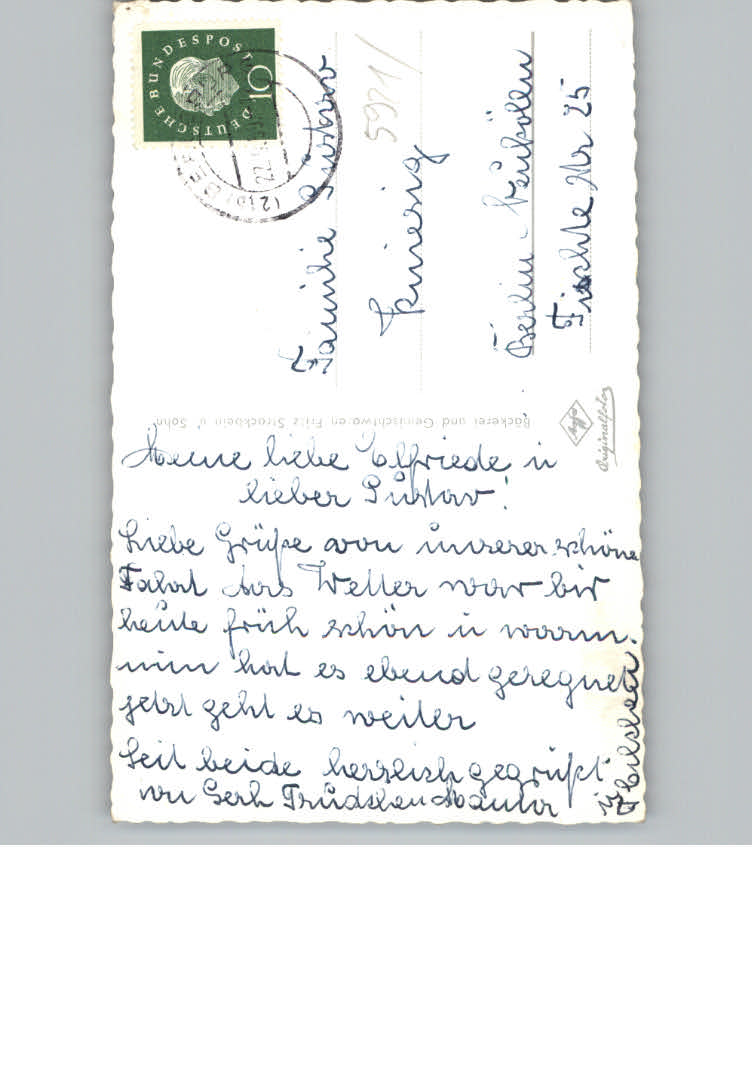 DEUTSCHE BUNDESPOST
10
Familie Gustav
5921/
Kuiesig
Berlin-Neukölln
Fichte Nr 25
Bäckerei und Gemischtwaren Fritz Strackbein u. Sohn
Agfa
Originalfoto
Meine liebe Elfriede u
lieber Gustav!
Liebe Grüße von unserer schöne
Fahrt das Wetter war bis
heute früh schön u warm.
nun hat es ebend geregnet
jetzt geht es weiter
Seit beide herzlich gegrüßt
von Gerh Trudchen